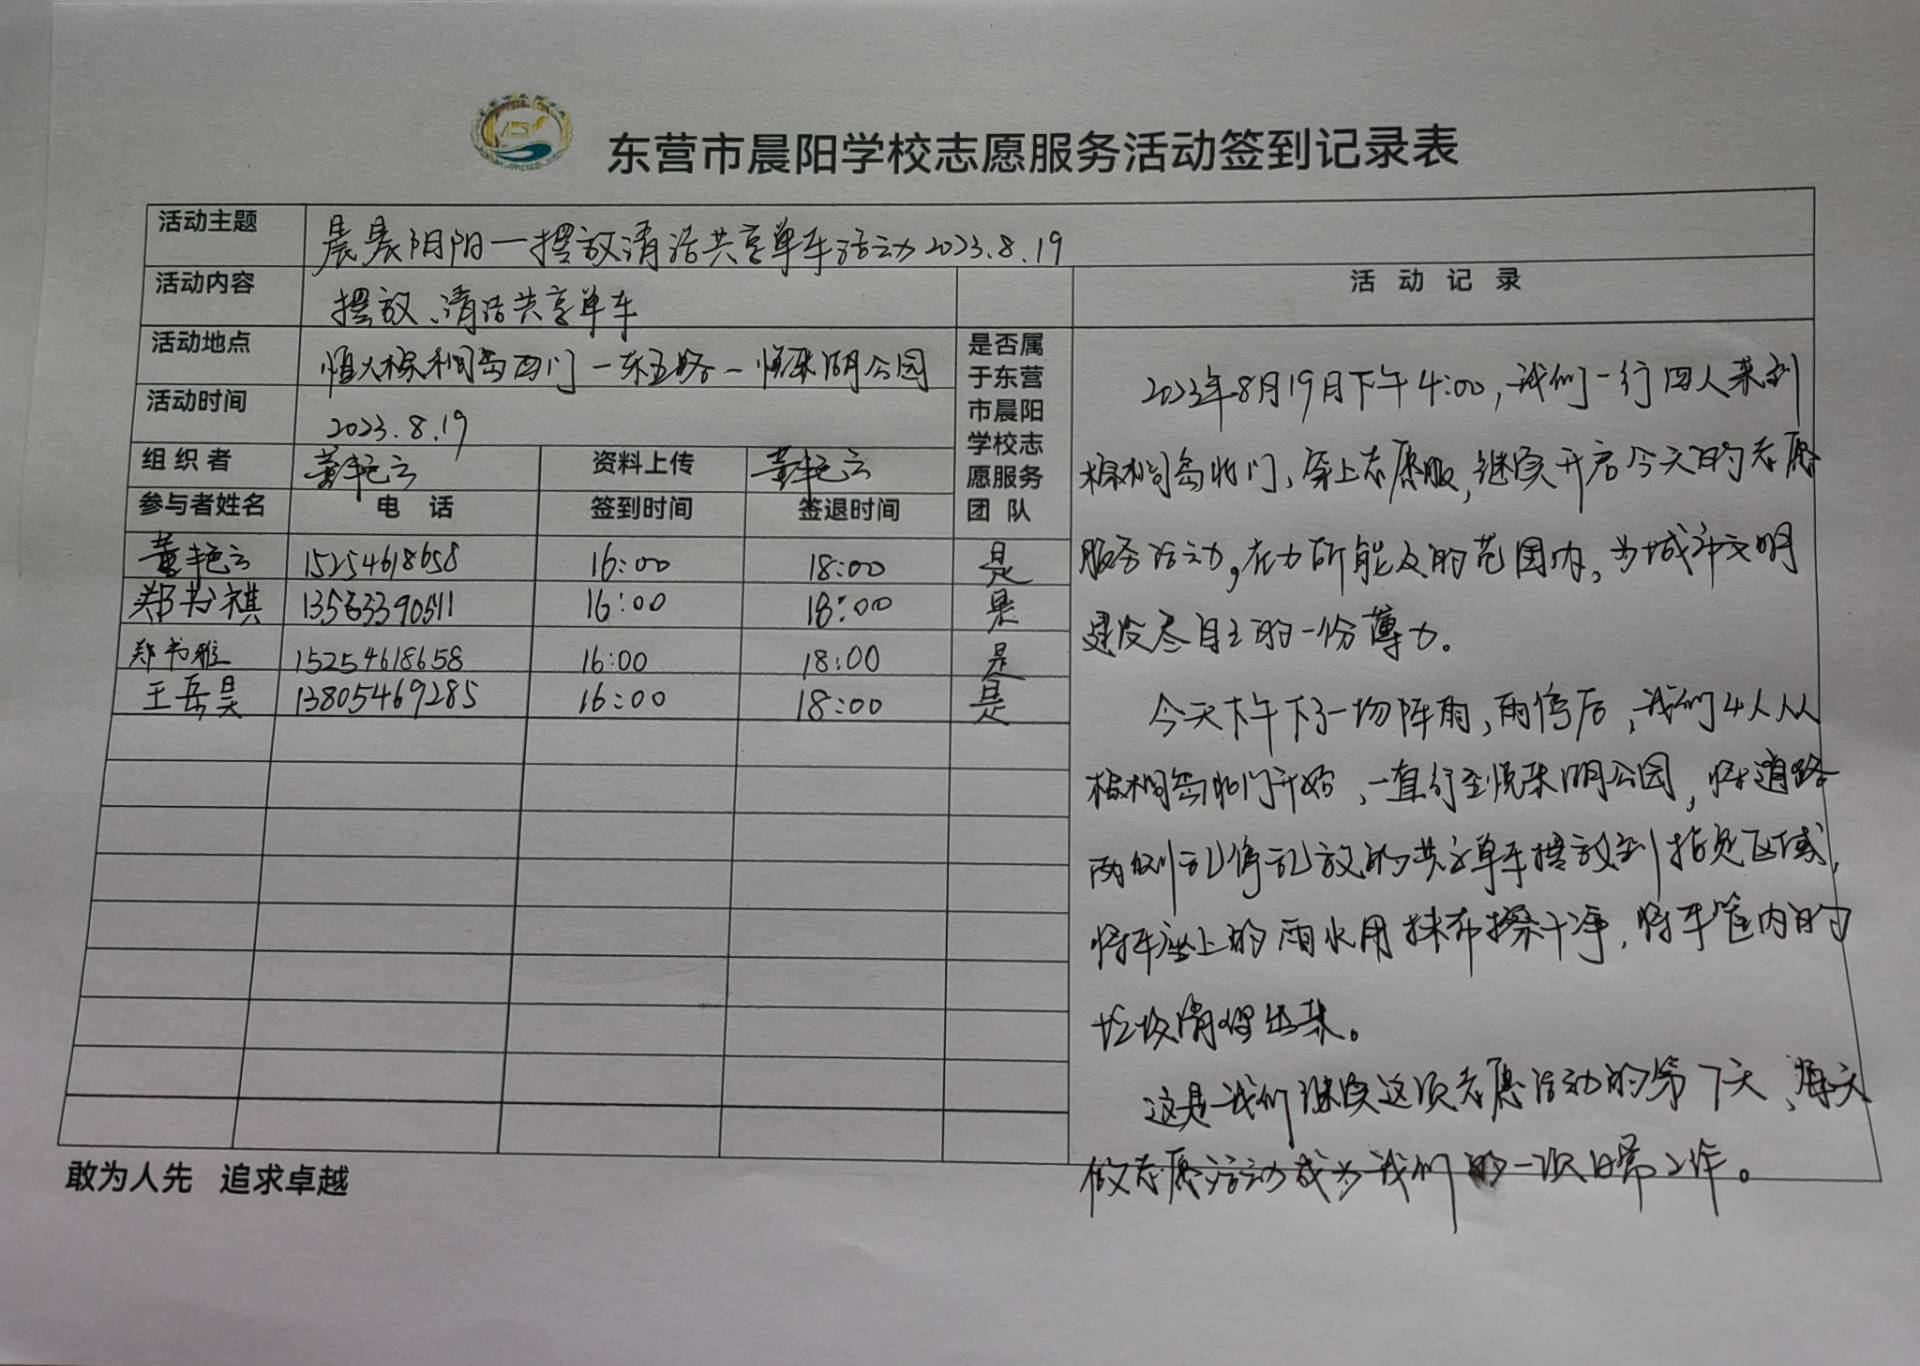 东营市晨阳学校志愿服务活动签到记录表
活动主题 晨晨阳阳—摆放清洁共享单车活动2023.8.19
活动内容 摆放、清洁共享单车
活动地点 恒大棕榈岛西门—东五路—悦来湖公园
活动时间 2023.8.19
组织者 董艳云 资料上传 董艳云
参与者姓名 电 话 签到时间 签退时间
是否属
于东营
市晨阳
学校志
愿服务
团 队
董艳云 15254618658 16:00 18:00 是
郑书祺 13563390511 16:00 18:00 是
郑书雅 15254618658 16:00 18:00 是
王岳昊 13805469285 16:00 18:00 是
活 动 记 录
2023年8月19月下午4:00,我们一行四人来到
棕榈岛北门,穿上志愿服,继续开启今天的志愿
服务活动,在力所能及的范围内,为城市文明
建设尽自己的一份薄力。
今天下午下了一场阵雨,雨停后,我们4人从
棕榈岛北门开始,一直行至悦来湖公园,将道路
两侧乱停乱放的共享单车摆放到指定区域,
将车座上的雨水用抹布擦干净,将车筐内的
垃圾清理出来。
这是我们继续这项志愿活动的第7天,每天
做志愿活动成为我们的一项日常工作。
敢为人先 追求卓越